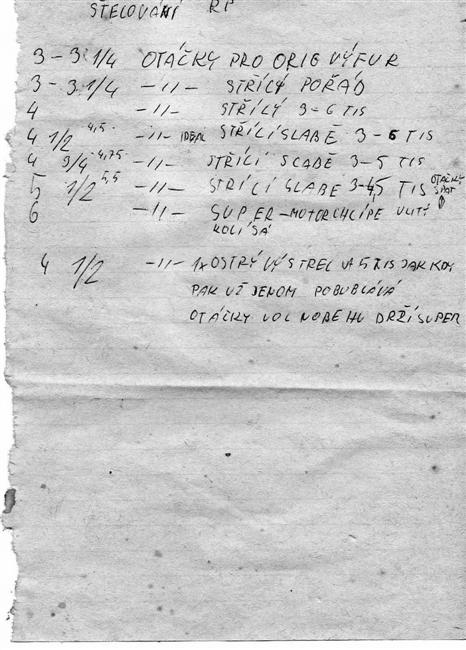 ŠTELOVÁNÍ RP
3 - 3 1/4 OTÁČKY PRO ORIG VÝFUK
3 - 3 1/4 -11- STŘÍLÝ POŘÁD
4 -11- STŘÍLÝ 3-6 TIS
4 1/2 4,5 -11- IDEAL STŘÍLÍ SLABĚ 3-6 TIS
4 3/4 4,75 -11- STŘÍLÍ SLABĚ 3-5 TIS
5 1/2 5,5 -11- STŘÍLÍ SLABĚ TIS OTÁČKY ŠPAT
6 -11- SUPER-MOTOR
KOLÍSÁ
4 1/2 -11- 1x OSTRÝ VÝSTREL 5 TIS JAK KDY
PAK UŽ JENOM POBUBLÁVÁ
OTÁČKY VOLNOBEHU DRŽÍ SUPER